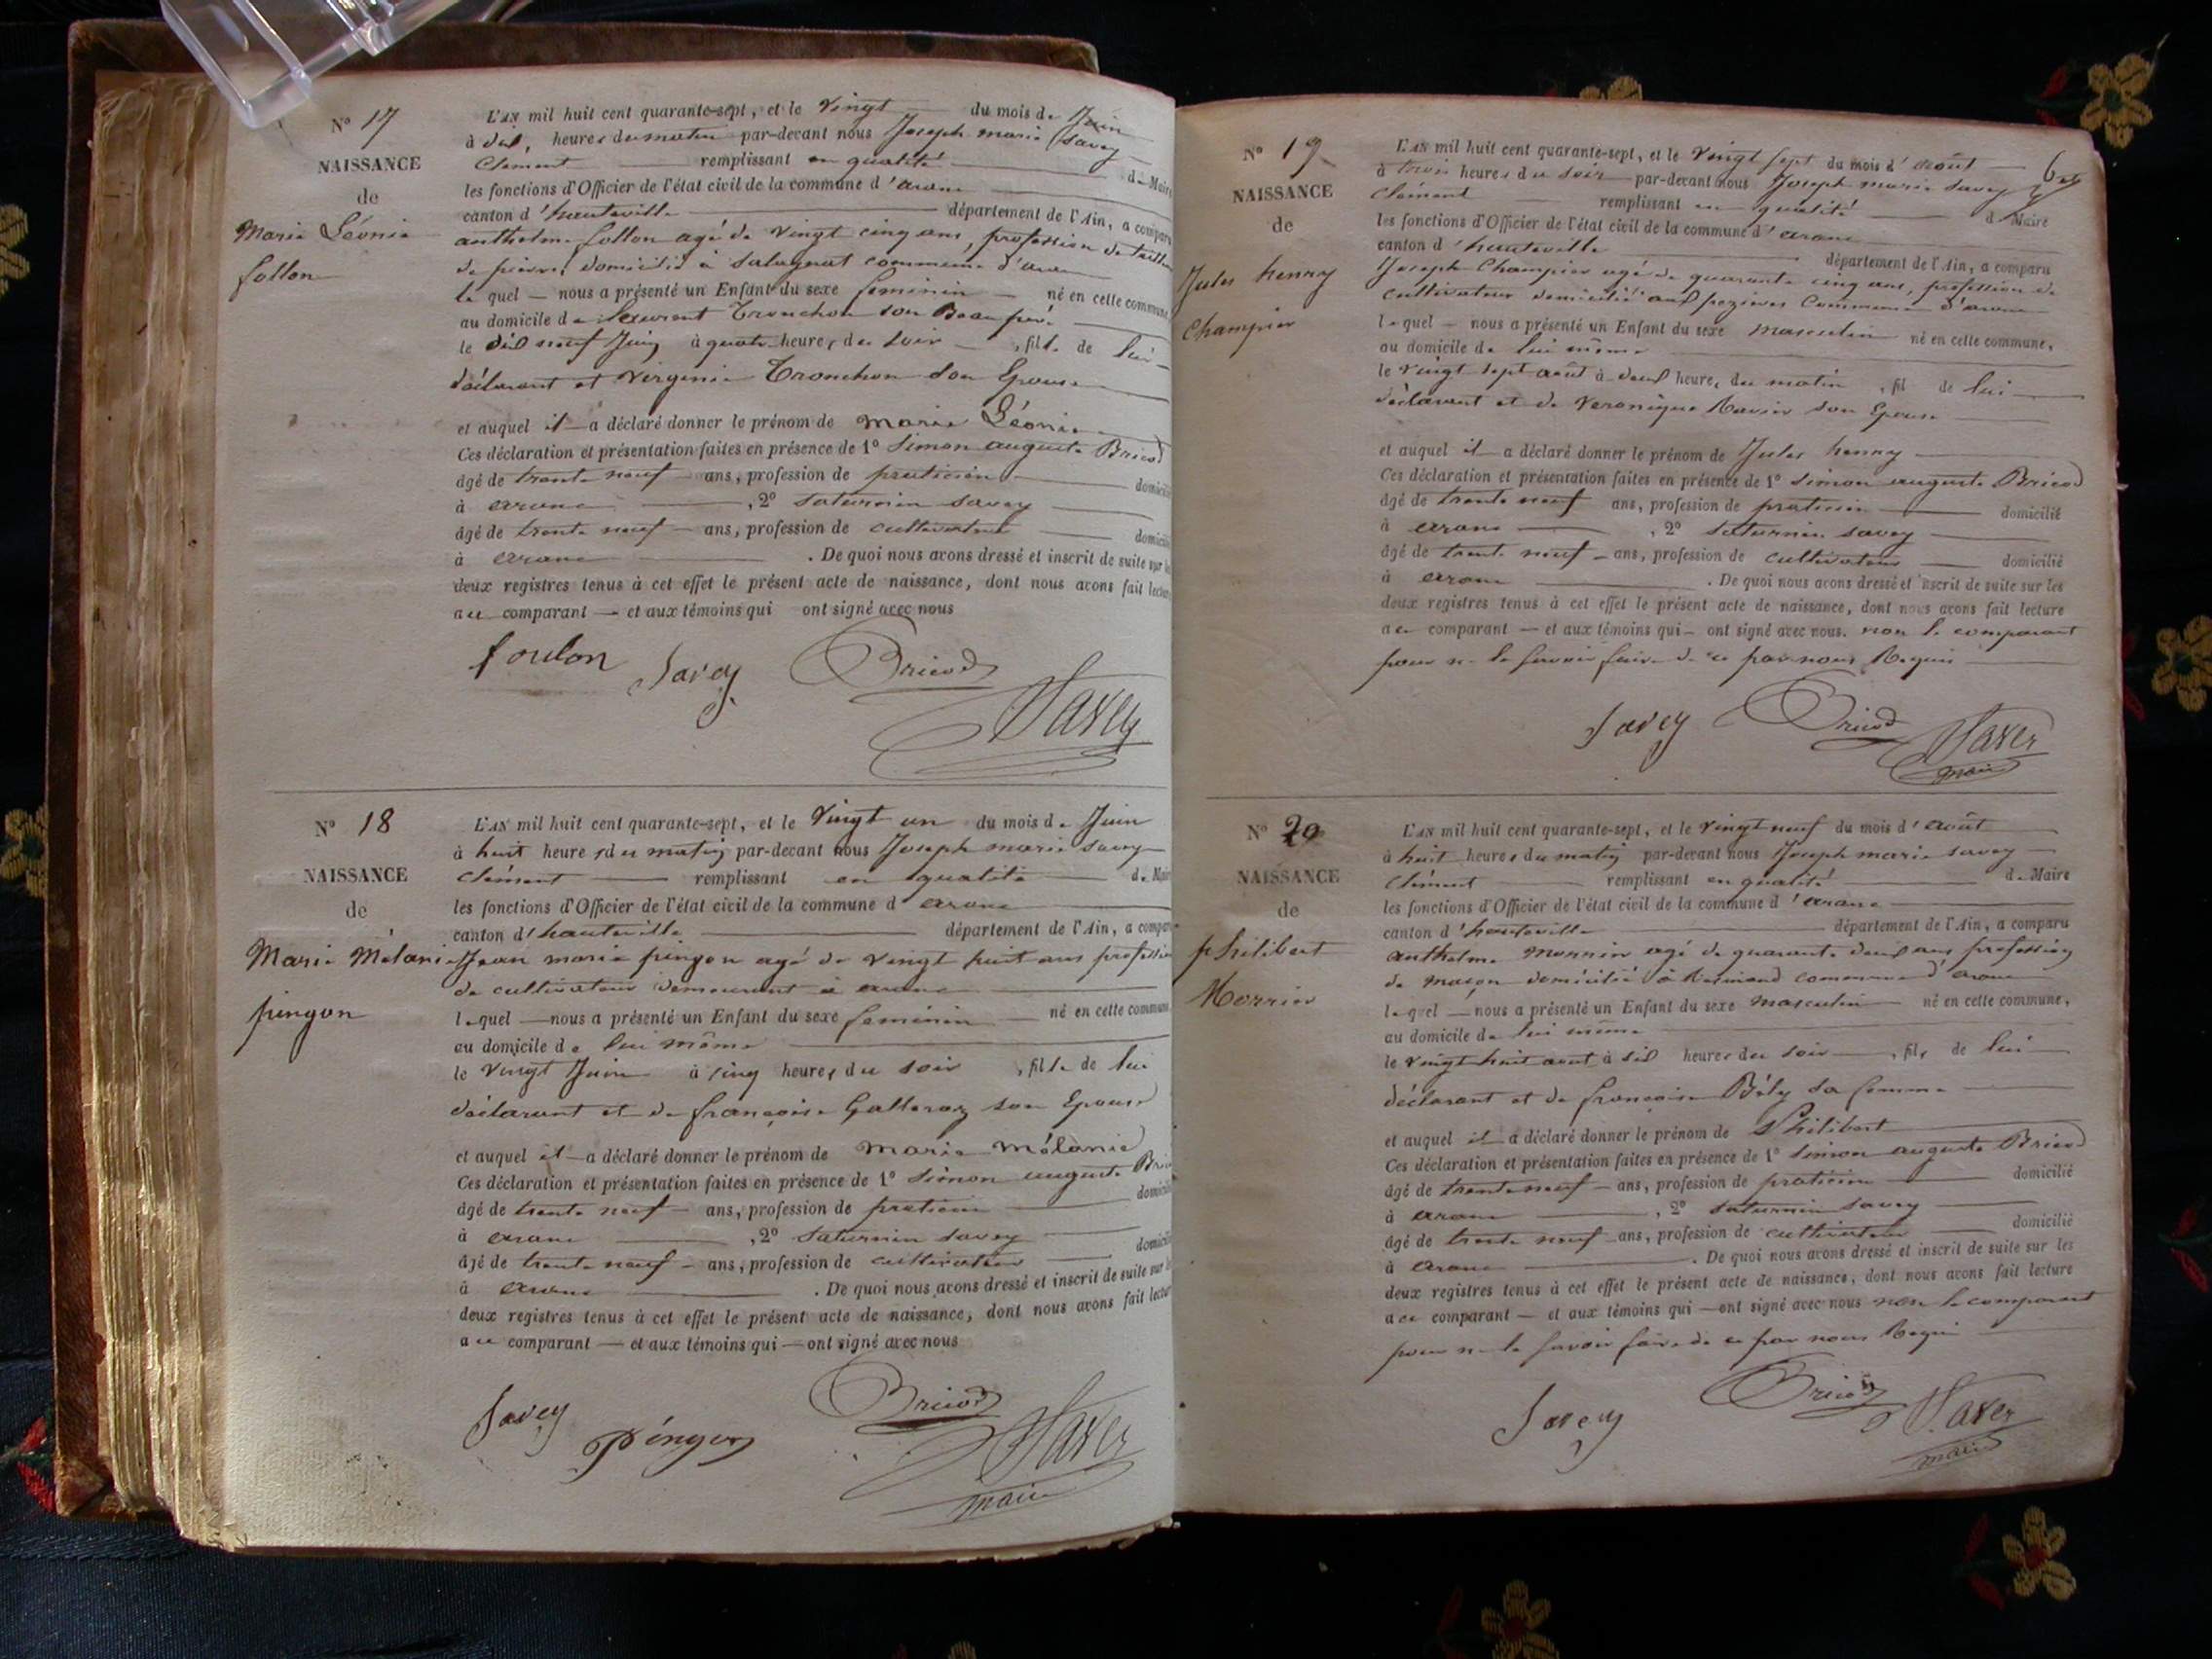 N° 17
NAISSANCE
de
Marie Léonie
follon
L'AN mil huit cent quarante-sept, et le Vingt du mois de Juin
à dix, heures du matin par-devant nous Joseph marie Savey
Clément remplissant en qualité de Maire
les fonctions d'Officier de l'état civil de la commune d'arane
canton d'hauteville département de l'Ain, a comparu
anthelme follon agé de Vingt cinq ans, profession de tailleur
de pierre, domicilié à commune d'aran
le quel — nous a présenté un Enfant du sexe feminin né en cette commune
au domicile de Laurent Tronchon son Beau père
le dix neuf Juin à quatre heures du soir, fille de lui
déclarant et Virginie Tronchon son Epouse
et auquel il a déclaré donner le prénom de marie Léonie
Ces déclaration et présentation faites en présence de 1° Simon auguste Bricod
âgé de trente neuf ans, profession de praticien domicilié
à arane, 2° Saturnin Savey
âgé de trente neuf ans, profession de cultivateur domicilié
à arane. De quoi nous avons dressé et inscrit de suite sur les
deux registres tenus à cet effet le présent acte de naissance, dont nous avons fait lecture
au comparant — et aux témoins qui ont signé avec nous
foulon Savey Bricod
Savey
N° 18
NAISSANCE
de
Marie Mélanie
pingon
L'AN mil huit cent quarante-sept, et le Vingt un du mois de Juin
à huit heures du matin par-devant nous Joseph marie Savey
Clément remplissant en qualité de Maire
les fonctions d'Officier de l'état civil de la commune d arane
canton d'hauteville département de l'Ain, a comparu
Jean marie pingon agé de vingt huit ans profession
de cultivateur demeurant à arane
lequel — nous a présenté un Enfant du sexe feminin né en cette commune
au domicile de lui même
le Vingt Juin à cinq heures du soir, fille de lui
déclarant et de françoise Galleraz son Epouse
et auquel il a déclaré donner le prénom de marie mélanie
Ces déclaration et présentation faites en présence de 1° Simon auguste Bricod
âgé de trente neuf ans, profession de praticien domicilié
à arane, 2° Saturnin Savey
âgé de trente neuf ans, profession de cultivateur domicilié
à arane. De quoi nous avons dressé et inscrit de suite sur les
deux registres tenus à cet effet le présent acte de naissance, dont nous avons fait lecture
au comparant — et aux témoins qui — ont signé avec nous
Savey Pingon Bricod
Savey
maire
N° 19
NAISSANCE
de
Jules henry
Champier
L'AN mil huit cent quarante-sept, et le Vingt sept du mois d'août
à trois heures du soir par-devant nous Joseph marie Savey
Clément remplissant en qualité de Maire
les fonctions d'Officier de l'état civil de la commune d'arane
canton d'hauteville département de l'Ain, a comparu
Joseph Champier agé de quarante cinq ans, profession de
cultivateur domicilié aux pezières Commune d'arane
lequel — nous a présenté un Enfant du sexe masculin né en cette commune,
au domicile de lui même
le vingt sept août à deux heures du matin, fil de lui
déclarant et de Veronique Ravier son Epouse
et auquel il a déclaré donner le prénom de Jules henry
Ces déclaration et présentation faites en présence de 1° Simon auguste Bricod
âgé de trente neuf ans, profession de praticien domicilié
à arane, 2° Saturnin Savey
âgé de trente neuf ans, profession de cultivateur domicilié
à arane. De quoi nous avons dressé et inscrit de suite sur les
deux registres tenus à cet effet le présent acte de naissance, dont nous avons fait lecture
au comparant — et aux témoins qui — ont signé avec nous. non le comparant
pour ne le savoir faire de ce par nous Requis
Savey Bricod Savey
maire
N° 20
NAISSANCE
de
philibert
Morrier
L'AN mil huit cent quarante-sept, et le Vingt neuf du mois d'août
à huit heures du matin par-devant nous Joseph marie Savey
Clément remplissant en qualité de Maire
les fonctions d'Officier de l'état civil de la commune d'arane
canton d'hauteville département de l'Ain, a comparu
anthelme morrier agé de quarante deux ans profession
de maçon domicilié à commune d'arane
lequel — nous a présenté un Enfant du sexe masculin né en cette commune,
au domicile de lui même
le vingt huit aout à six heures du soir, fils de lui
déclarant et de françoise Bély sa femme
et auquel il a déclaré donner le prénom de Philibert
Ces déclaration et présentation faites en présence de 1° Simon auguste Bricod
âgé de trente neuf ans, profession de praticien domicilié
à arane, 2° Saturnin Savey
âgé de trente neuf ans, profession de cultivateur domicilié
à arane. De quoi nous avons dressé et inscrit de suite sur les
deux registres tenus à cet effet le présent acte de naissance, dont nous avons fait lecture
au comparant — et aux témoins qui — ont signé avec nous non le comparant
pour ne le savoir faire de ce par nous Requi
Savey Bricod Savey
maire